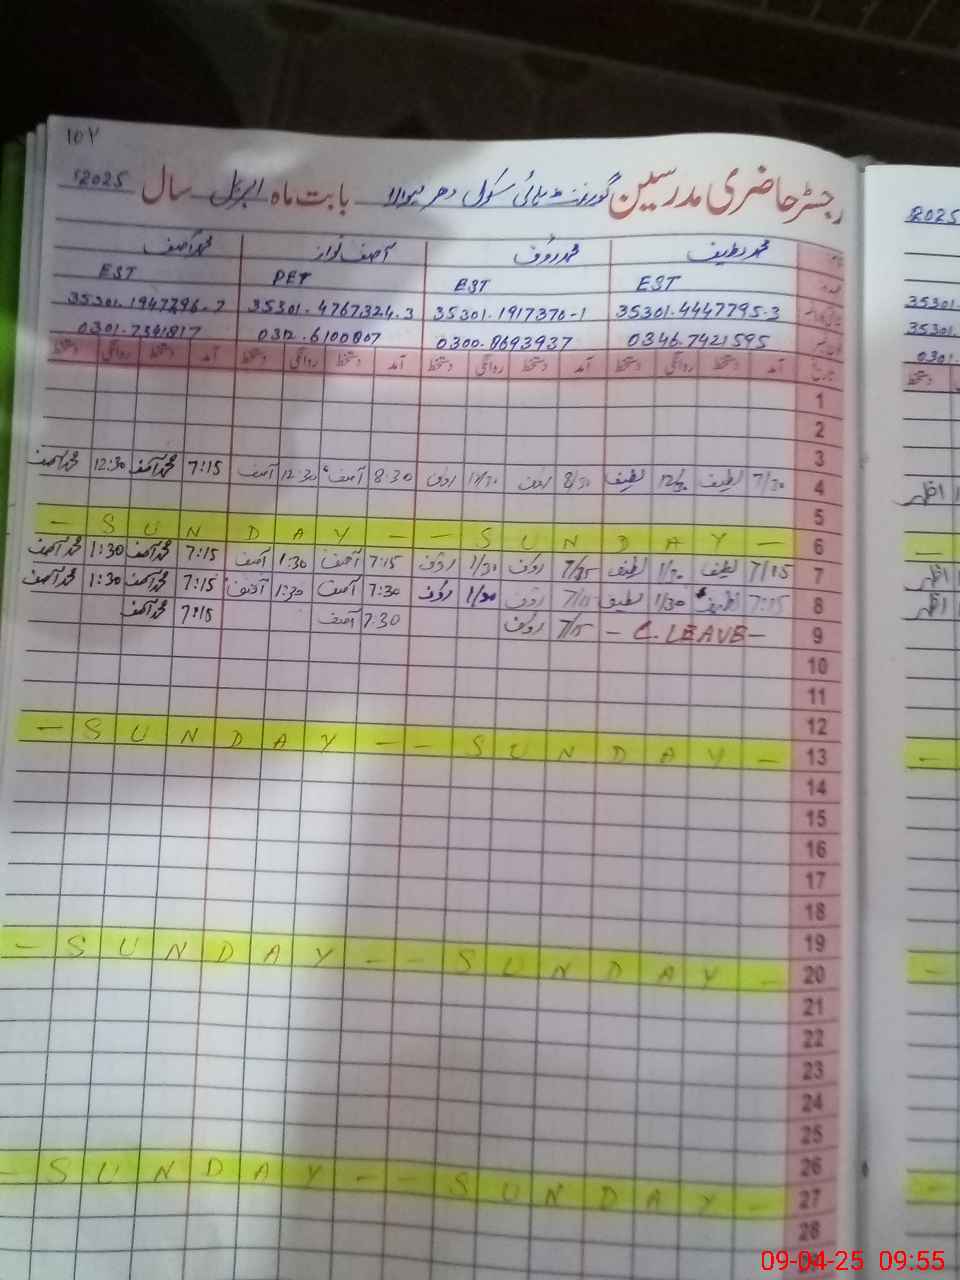 107
رجسٹر حاضری مدرسین گورنمنٹ ہائی سکول بابت ماہ اپریل سال 2025
محمد لطیف محمد رؤف آصف نواز محمد آصف
EST EST PET EST
35301.4447795.3 35301.1917370-1 35301.4767324.3 35301.1947296-7
0346.7421595 0300.8693937 0312.6100807 0301-7391817
تاریخ آمد دستخط روانگی دستخط آمد دستخط روانگی دستخط آمد دستخط روانگی دستخط آمد دستخط روانگی دستخط
1
2
3
4 7/30 لطیف لطیف 8/30 رؤف رؤف 8:30 آصف 12:30 آصف 7:15 محمد آصف 12:30 محمد آصف
5
6 - S U N D A Y - - S U N D A Y -
7 7/15 لطیف 1/30 لطیف 7/15 رؤف 1/30 رؤف 7:15 آصف 1:30 آصف 7:15 محمد آصف 1:30 محمد آصف
8 7:15 لطیف 1/30 لطیف 7/15 رؤف 1/30 رؤف 7:30 آصف 1:30 آصف 7:15 محمد آصف 1:30 محمد آصف
9 - C. LEAVE - 7/15 رؤف 7.30 آصف 7:15 محمد آصف
10
11
12
13 - S U N D A Y - - S U N D A Y -
14
15
16
17
18
19
20 - S U N D A Y - - S U N D A Y -
21
22
23
24
25
26
27 - S U N D A Y - - S U N D A Y -
28
29
2025
35301.
35301.
0301
دستخط
اظہر
اظہر
اظہر
09-04-25 09:55